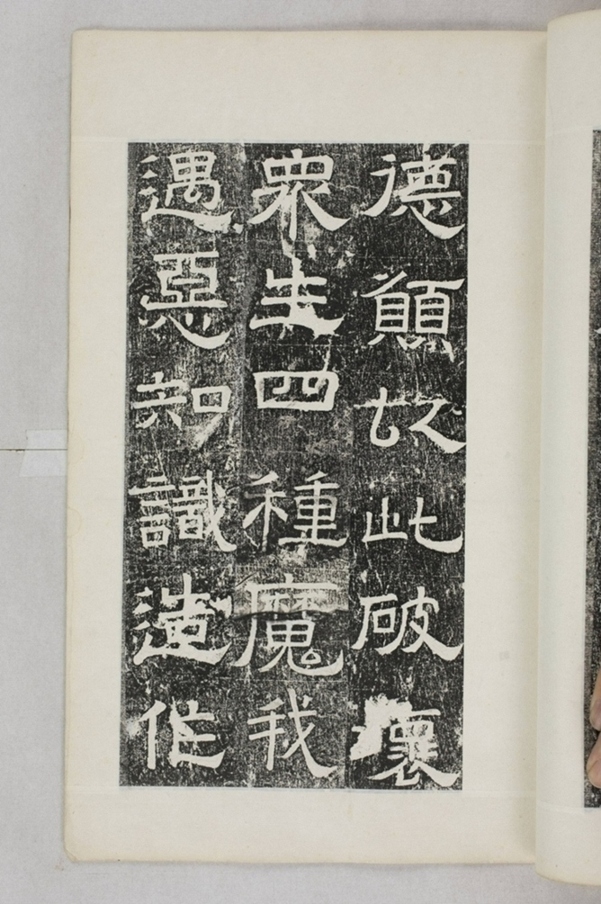 德願故此破壞
衆生四種魔我
遇惡知識造作